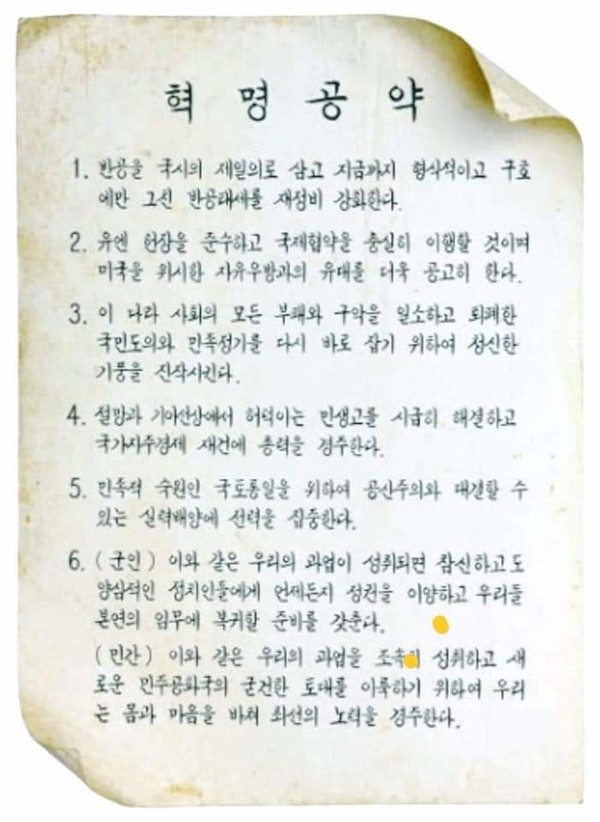 혁 명 공 약
1. 반공을 국시의 제일의로 삼고 지금까지 형식적이고 구호
에만 그친 반공태세를 재정비 강화한다.
2. 유엔 헌장을 준수하고 국제협약을 충실히 이행할 것이며
미국을 위시한 자유우방과의 유대를 더욱 공고히 한다.
3. 이 나라 사회의 모든 부패와 구악을 일소하고 퇴폐한
국민도의와 민족정기를 다시 바로 잡기 위하여 청신한
기풍을 진작시킨다.
4. 절망과 기아선상에서 허덕이는 민생고를 시급히 해결하고
국가자주경제 재건에 총력을 경주한다.
5. 민족적 숙원인 국토통일을 위하여 공산주의와 대결할 수
있는 실력배양에 전력을 집중한다.
6. (군인) 이와 같은 우리의 과업이 성취되면 참신하고도
양심적인 정치인들에게 언제든지 정권을 이양하고 우리들
본연의 임무에 복귀할 준비를 갖춘다.
(민간) 이와 같은 우리의 과업을 성취하고 새
로운 민주공화국의 굳건한 토대를 이룩하기 위하여 우리
는 몸과 마음을 바쳐 최선의 노력을 경주한다.